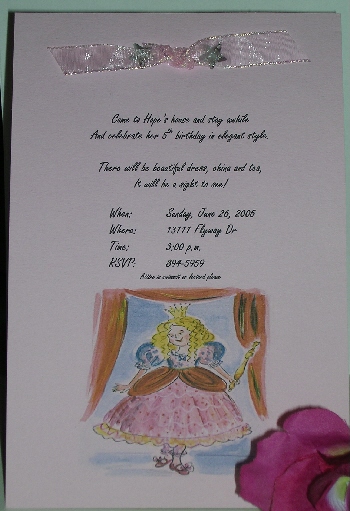 Come to Hope's house and stay awhile
And celebrate her 5th birthday in elegant style.
There will be beautiful dress, china and tea,
It will be a sight to see!
When: Sunday, June 26, 2005
Where: 13111 Flyway Dr
Time: 3:00 p.m.
RSVP: 894-5959
is swimsuit or leotard please